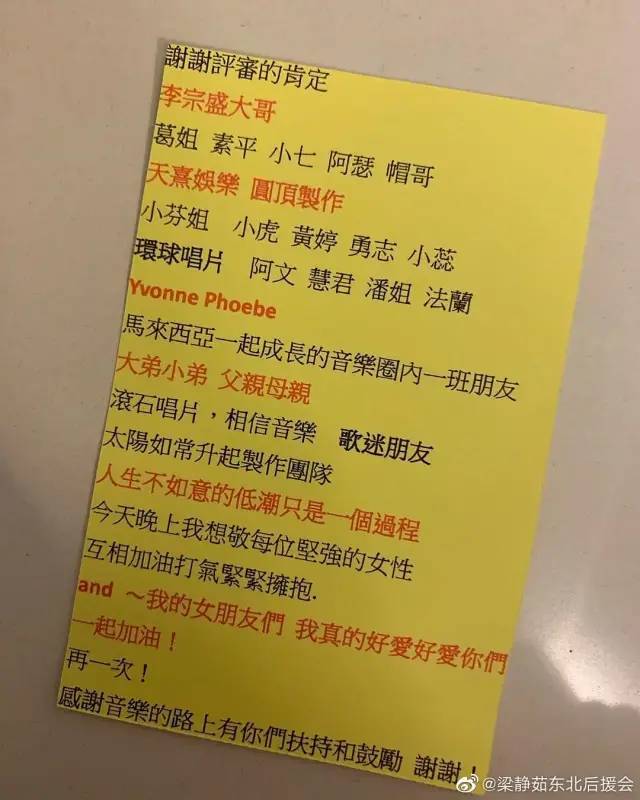 謝謝評審的肯定
李宗盛大哥
葛姐 素平 小七 阿瑟 帽哥
天熹娛樂 圓頂製作
小芬姐 小虎 黃婷 勇志 小蕊
環球唱片 阿文 慧君 潘姐 法蘭
Yvonne Phoebe
馬來西亞一起成長的音樂圈內一班朋友
大弟小弟 父親母親
滾石唱片，相信音樂 歌迷朋友
太陽如常升起製作團隊
人生不如意的低潮只是一個過程
今天晚上我想敬每位堅強的女性
互相加油打氣緊緊擁抱.
and ～我的女朋友們 我真的好愛好愛你們
一起加油！
再一次！
感謝音樂的路上有你們扶持和鼓勵 謝謝！
@梁静茹东北后援会